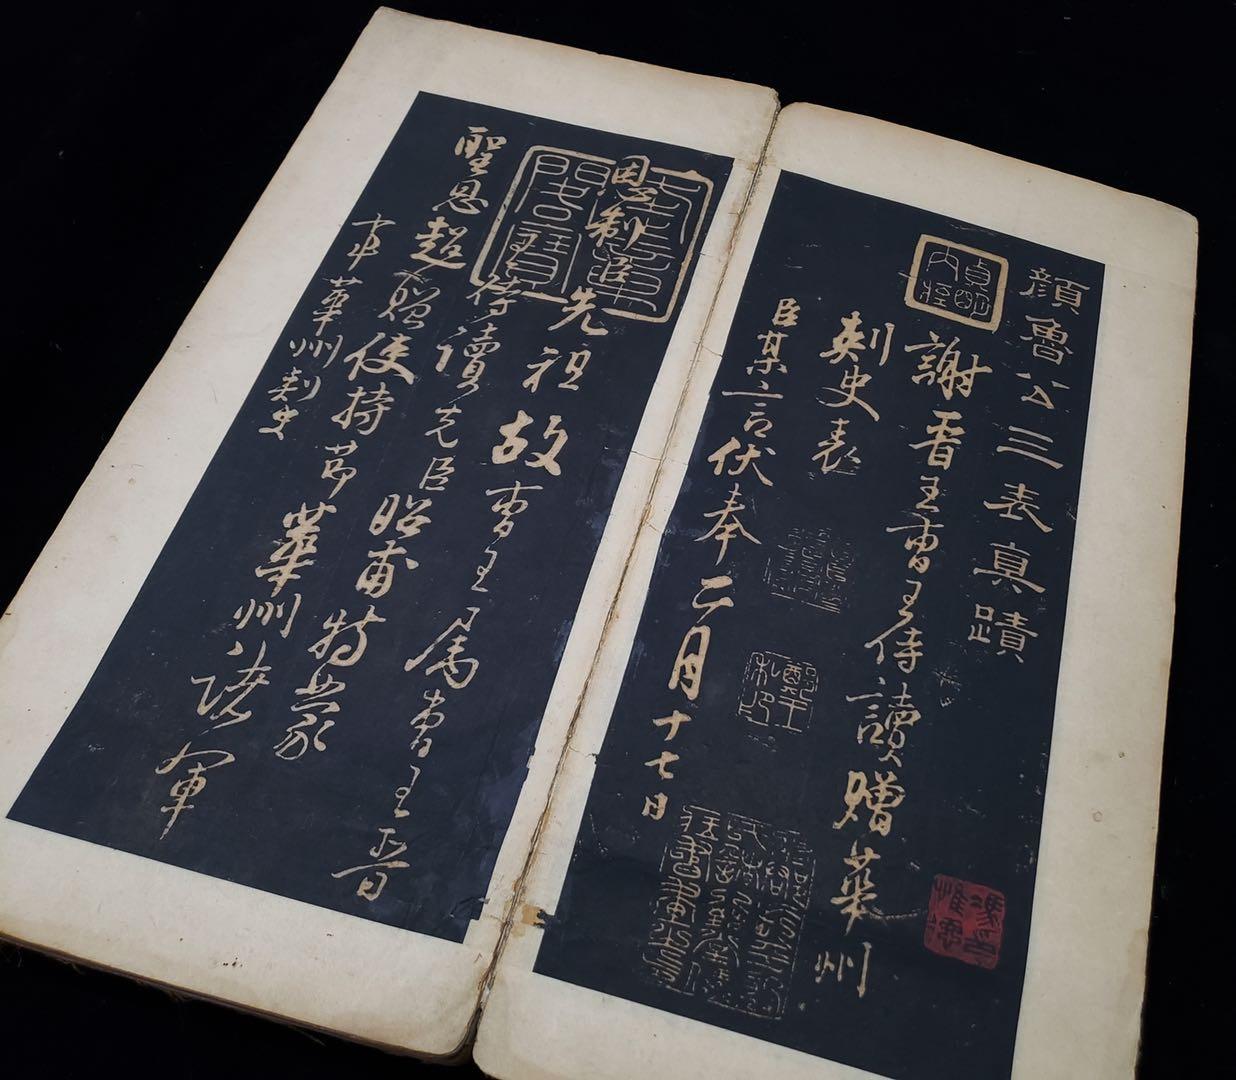 顔魯公三表真蹟
謝晉王曹王侍讀贈華州
刺史表
臣某言伏奉二月十七日
恩制臣
先祖故曹王属曹王晉
王侍讀先臣昭甫特蒙
聖恩超贈使持節華州諸軍
事華州刺史
貞明
內極